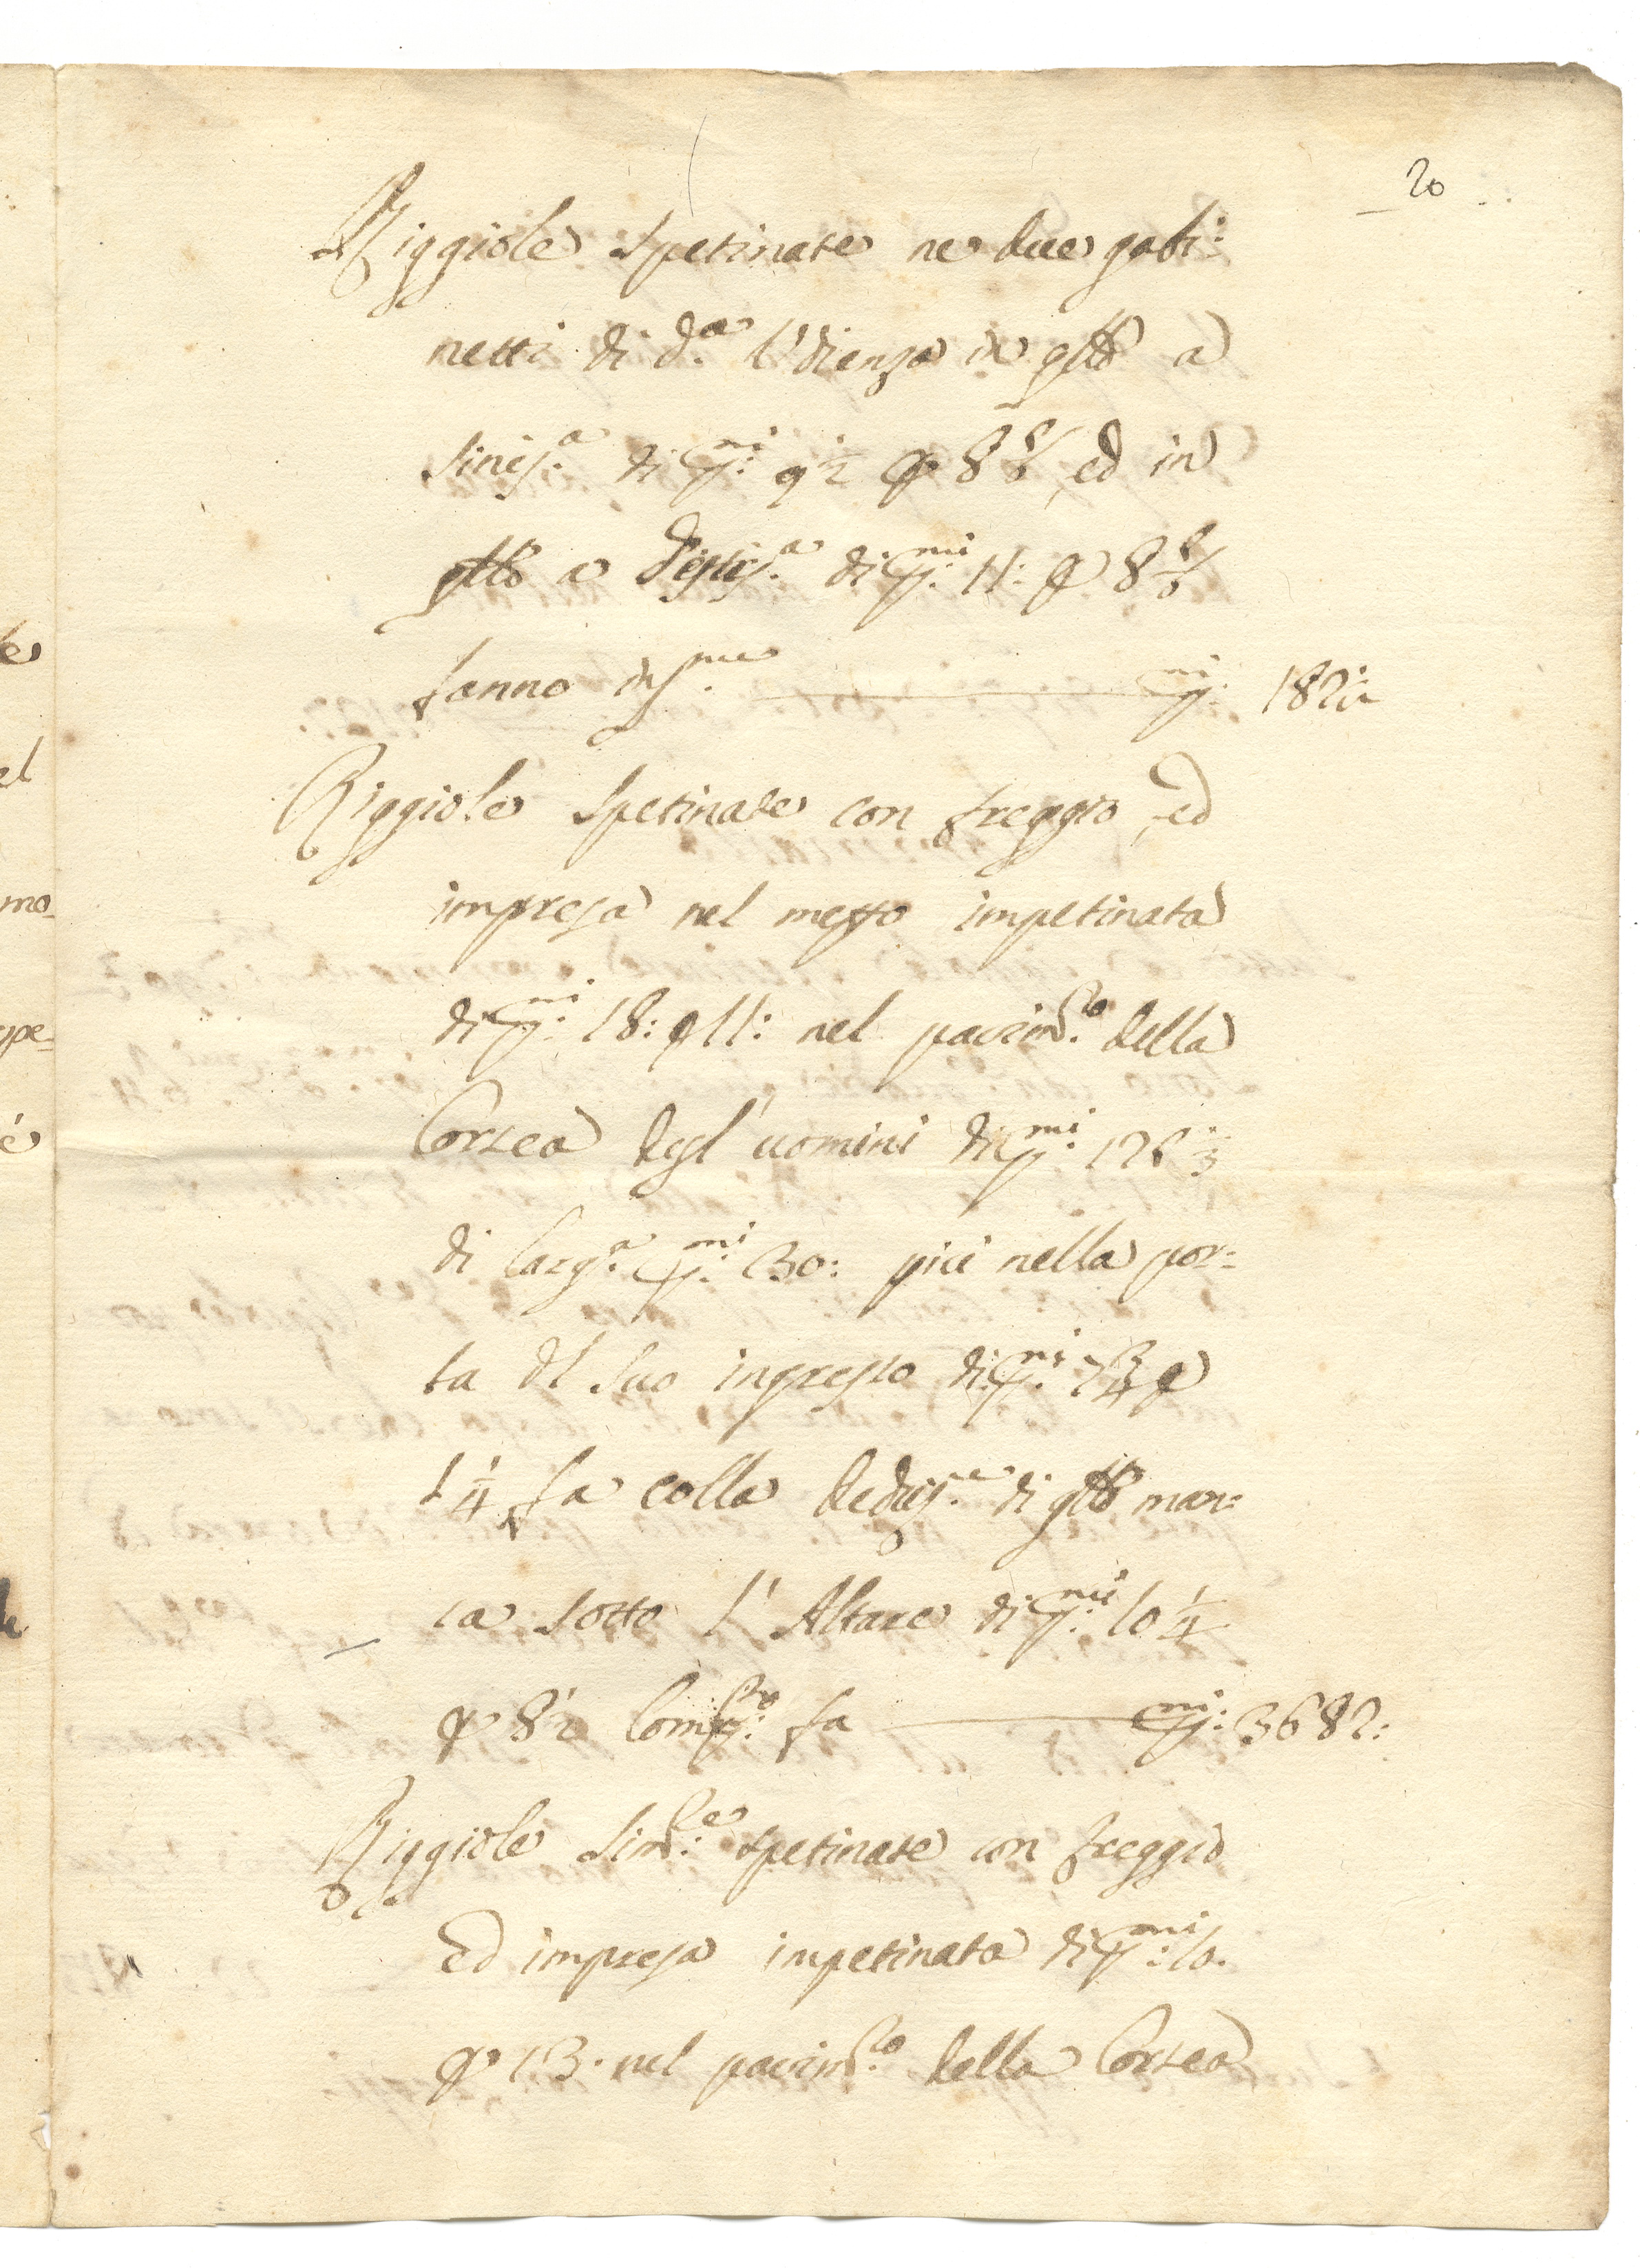 20
Riggiole spetinate ne due gabi:
netti di d.a l'dienza in qtto a
sinis.a di p.mi 9½ p 8⅚ ed in
qtto a des.a di p.mi 11: p 8
fanno ins.me p.mi 182:
Riggiole spetinate con freggio, ed
impresa nel mezzo impetinata
di p.mi 18: p 11: nel pavim.to della
Corsea degl'uomini di p.mi 126
di larg.a p.mi 30: più nella por=
ta del suo ingresso di p.mi 7¾ p
1¼ fa colla deduz.e di qtto man=
ca sotto l'Altare di p.mi 10¼
p 8½ Comp.to fa p.mi 3682:
Riggiole Sim.le spetinate con freggio
Ed impresa impetinata di p.mi: 10.
p 13. nel pavim.to della Corsea